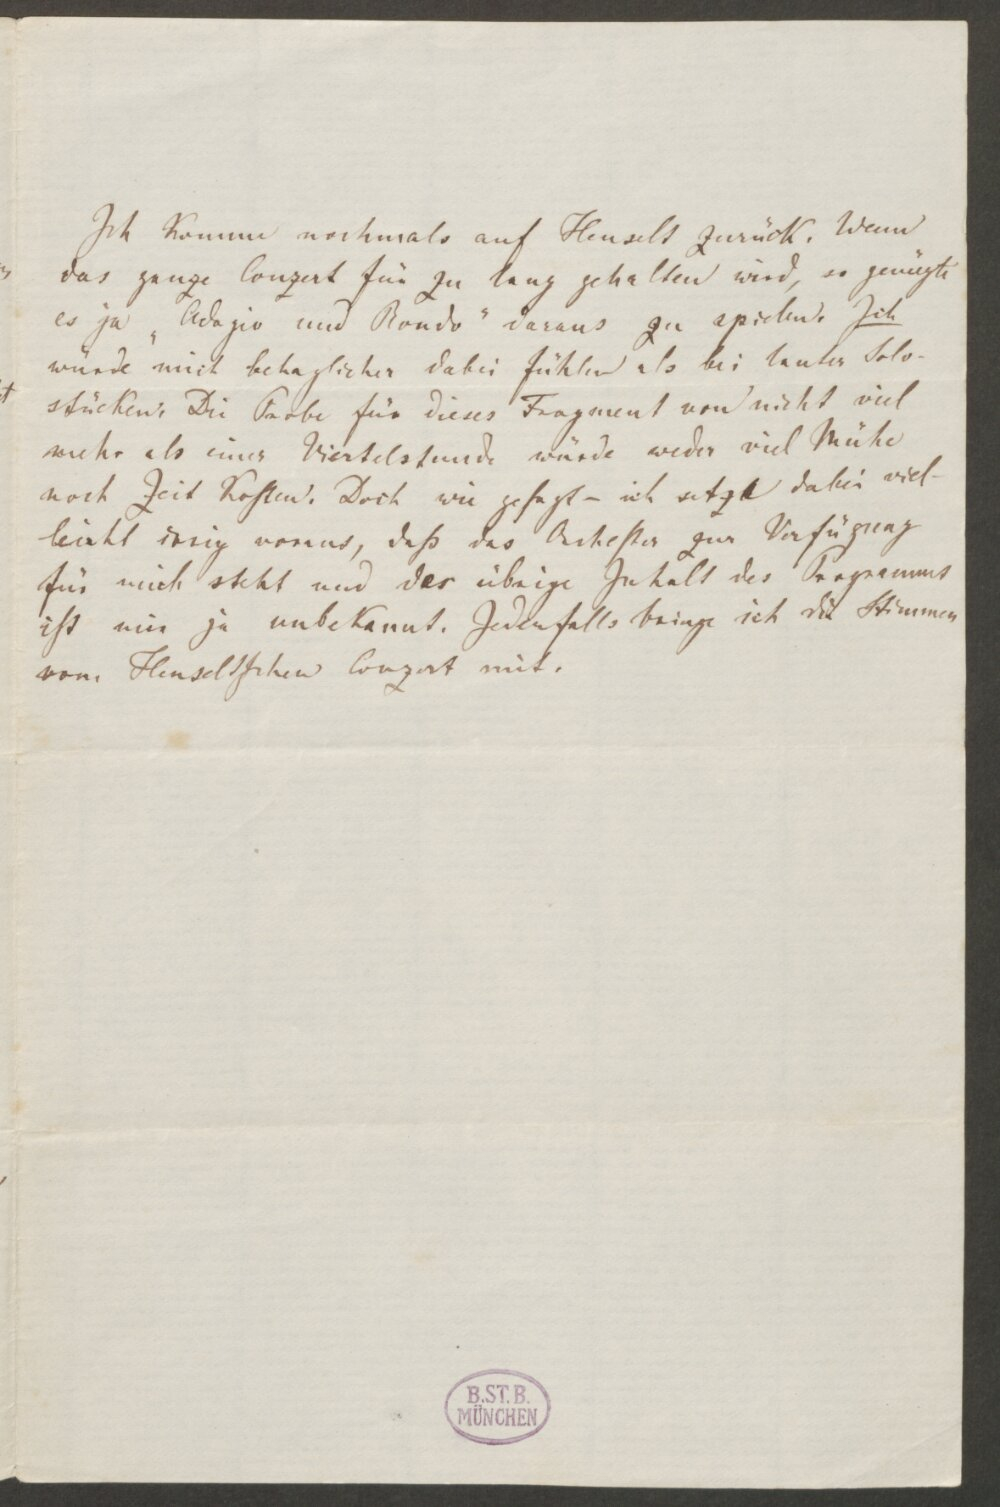 Ich komme nochmals auf Henselt zurück. Wenn
das ganze Conzert für zu lang gehalten wird, so genügte
es ja „Adagio und Rondo" daraus zu spielen. Ich
würde mich behaglicher dabei fühlen als bei lauter Solo-
stücken. Die Probe für dieses Fragment von nicht viel
mehr als einer Viertelstunde würde weder viel Mühe
noch Zeit kosten. Doch wie gesagt – ich setze dabei viel-
leicht irrig voraus, daß das Orchester zur Verfügung
für mich steht und der übrige Inhalt des Programms
ist mir ja unbekannt. Jedenfalls bringe ich die Stimmen
vom Henseltschen Conzert mit.
B.ST.B.
MÜNCHEN